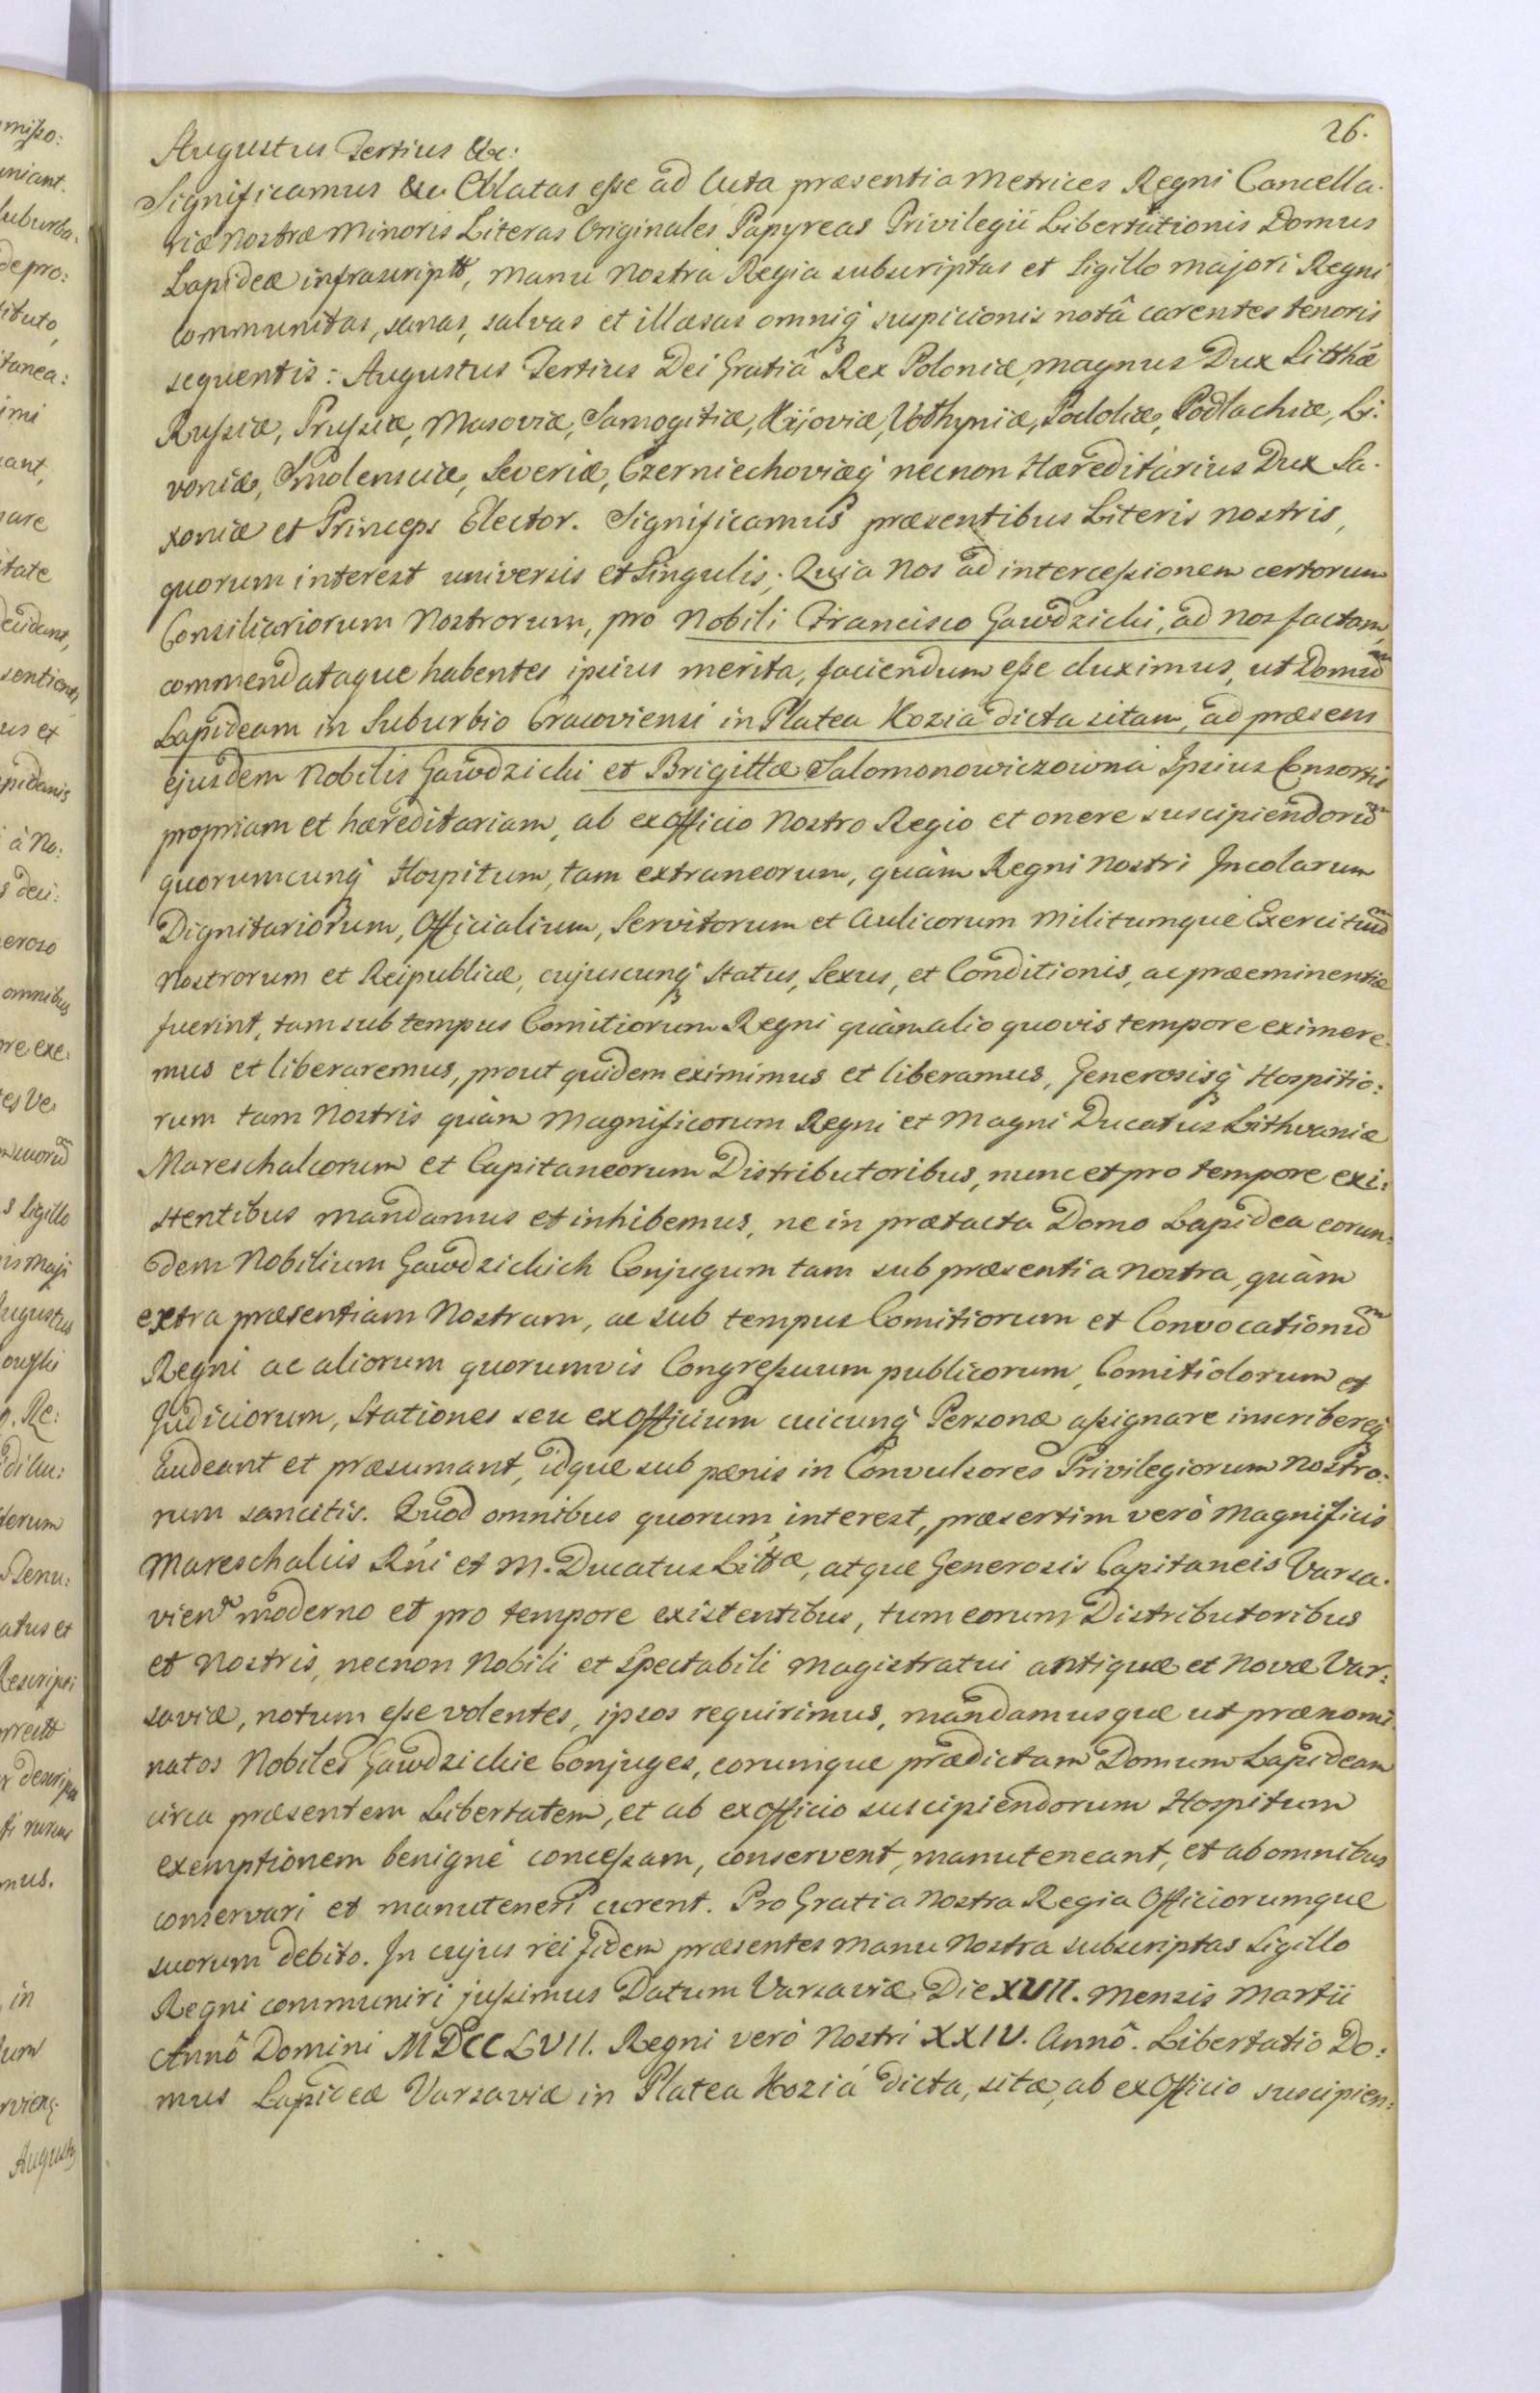 26.
Augustus Tertius &c:
Significamus &c. Oblatas esse ad Acta præsentia Metrices Regni Cancella.
riæ Nostræ Minoris Literas Originales Papyreas Privilegii Libertationis Domus
Lapideæ infrascriptæ, manu Nostra Regia subscriptas et Sigillo majori Regni
communitas, sanas, salvas et illæsas omniq́ suspicionis notâ carentes tenoris
sequentis: Augustus Tertius Dei Gratiâ Rex Poloniæ, Magnus Dux Litthæ
Russiæ, Prussiæ, Masoviæ, Samogitiæ, Kijoviæ, Volhyniæ, Podoliæ, Podlachiæ, Li.
voniæ, Smolensciæ, Severiæ, Czerniechoviæq́ necnon Hæreditarius Dux Sa.
xoniæ et Princeps Elector. Significamus præsentibus Literis Nostris,
quorum interest universis et Singulis. Quia Nos ad intercessionem certorum
Consiliariorum Nostrorum, pro Nobili Francisco Gawdzicki, ad Nos factam,
commendataque habentes ipsius merita, faciendum esse duximus, ut Domũ
Lapideam in Suburbio Cracoviensi in Platea Kozia dicta sitam, ad præsens
ejusdem Nobilis Gawdzicki et Brigittæ Salomonowiczowna Ipsius Consortis
propriam et hæreditariam, ab exofficio Nostro Regio et onere suscipiendorũ
quorumcunq́ Hospitum, tam extraneorum, quàm Regni Nostri Incolarum
Dignitariorum, Officialium, Servitorum et Aulicorum Militumque Exercituũ
Nostrorum et Reipublicæ, cujuscunq́ Status, Sexus, et Conditionis, ac præeminentiæ
fuerint, tam sub tempus Comitiorum Regni quàm alio quovis tempore eximere.
mus et liberaremus, prout quidem eximimus et liberamus, Generosisq́ Hospitio:
rum tam Nostris quàm Magnificorum Regni et Magni Ducatus Lithvaniæ
Mareschalcorum et Capitaneorum Distributoribus, nunc et pro tempore exi:
stentibus mandamus et inhibemus, ne in prætacta Domo Lapidea eorun:
dem Nobilium Gawdzickich Conjugum tam sub præsentia nostra, quàm
extra præsentiam Nostram, ac sub tempus Comitiorum et Convocationũ
Regni ac aliorum quorumvis Congressuum publicorum, Comitiolorum et
Judiciorum, Stationes seu exOfficium cuicunq́ Personæ assignare inscribereq́
audeant et præsumant, idque sub pænis in Convulsores Privilegiorum Nostro:
rum sancitis. Quod omnibus quorum interest, præsertim verò Magnificis
Mareschalcis Rńi et M. Ducatus Littæ, atque Generosis Capitaneis Varsa.
vien̄ moderno et pro tempore existentibus, tum eorum Distributoribus
et Nostris, necnon Nobili et Spectabili Magistratui antiquæ et Novæ Var:
saviæ, notum esse volentes, ipsos requirimus, mandamusque ut prænomi.
natos Nobiles Gawdzickie Conjuges, eorumque prædictam Domum Lapideam
circa præsentem Libertatem, et ab exofficio suscipiendorum Hospitum
exemptionem benignè concessam, conservent, manuteneant, et ab omnibus
conservari et manuteneri curent. Pro Gratia Nostra Regia Officiorumque
suorum debito. In cujus rei fidem præsentes manu Nostra subscriptas Sigillo
Regni communiri jussimus Datum Varsaviæ Die XVII. Mensis Martii
Annô Domini MDCCLVII. Regni verò Nostri XXIV. Annô. Libertatio Do:
mus Lapideæ Varsaviæ in Platea Kozia dicta, sitæ, ab exOfficio suscipien: